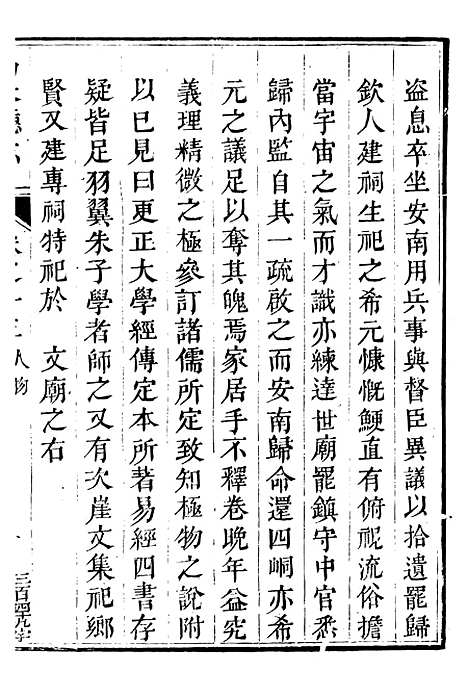 盜息卒坐安南用兵事與督臣異議以拾遺罷歸
欽人建祠生祀之希元慷慨鯁直有俯視流俗擔
當宇宙之氣而才識亦練達世廟罷鎮守中官悉
歸內監自其一疏啟之而安南歸命還四峒亦希
元之議足以奪其魄焉家居手不釋卷晚年益究
義理精微之極參訂諸儒所定致知極物之說附
以已見曰更正大學經傳定本所著易經四書存
疑皆足羽翼朱子學者師之又有次崖文集祀鄉
賢又建專祠特祀於 文廟之右
卷之十三 人物
三百四九字